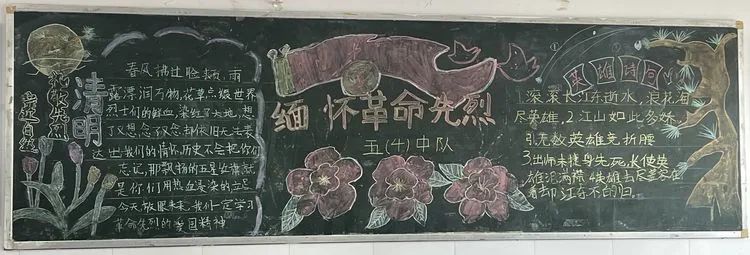 缅怀先烈
走近自然
清明
春风拂过脸颊,雨
露漂润万物,花草点缀世界
烈士们的鲜血,染红了大地,想
了又想念了又念却依旧无法表
达出我们的情怀历史不会把你们
忘记,那飘扬的五星红旗就
是你们用热血浸染的立足
今天放眼未来,我们一定学习
革命先烈的爱国精神
缅怀革命先烈
五(4)中队
英雄诗词
1.滚滚长江东逝水,浪花淘
尽英雄.2江山如此多娇,
引无数英雄竞折腰
3出师未捷身先死,长使英
雄泪满襟